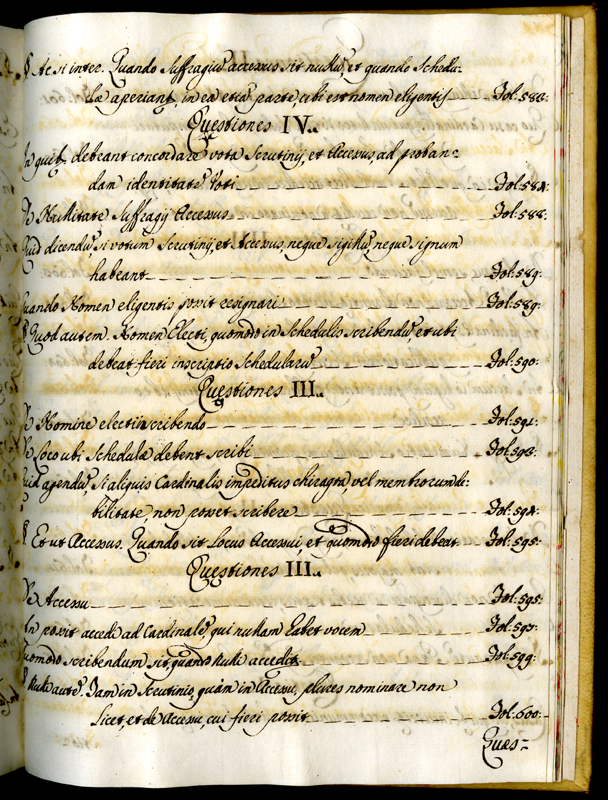 § Ac si inter. Quando Suffragiũ accessus sit nullũ, et quando Schedu:
læ aperiant, in ea etiã parte ubi est nomen eligentis Fol: 583:
Questiones IV.
In quib, debeant concordare vota Scrutinij, et Accessus, ad proban=
dam identitatẽ Voti Fol: 584:
De Nullitate Suffragij Accessus Fol: 588:
Quid dicendũ, si votum Scrutinij et Accessus, neque sigillũ, neque signum
habeant Fol: 589:
Quando Nomen eligentis possit resignari Fol: 589:
§ Quod autem. Nomen Electi, quomodo in Schedulis scribendũ, et ubi
debeat fieri inscriptio Schedularũ Fol: 590:
Questiones III.
De Nomine electi inscribendo Fol: 591:
De loco ubi Schedulæ debent scribi Fol: 593:
Quid agendũ, si aliquis Cardinalis impeditus chiragra, vel membrorum de:
bilitate, non posset scribere Fol: 594:
§ Et ut Accessus. Quando sit Locus Accessui, et quomodo fieri debeat. Fol: 595:
Questiones III.
De Accessu Fol: 595:
An possit accedi ad Cardinalẽ, qui nullam habet vocem Fol: 597:
Quomodo scribendum sit, quando Nulli accedit Fol: 599:
§ Nulli autẽ. Tam in Scrutinio, quàm in Accessu, plures nominare non
licet, et de Accessu, cui fieri possit Fol: 600:
Ques=